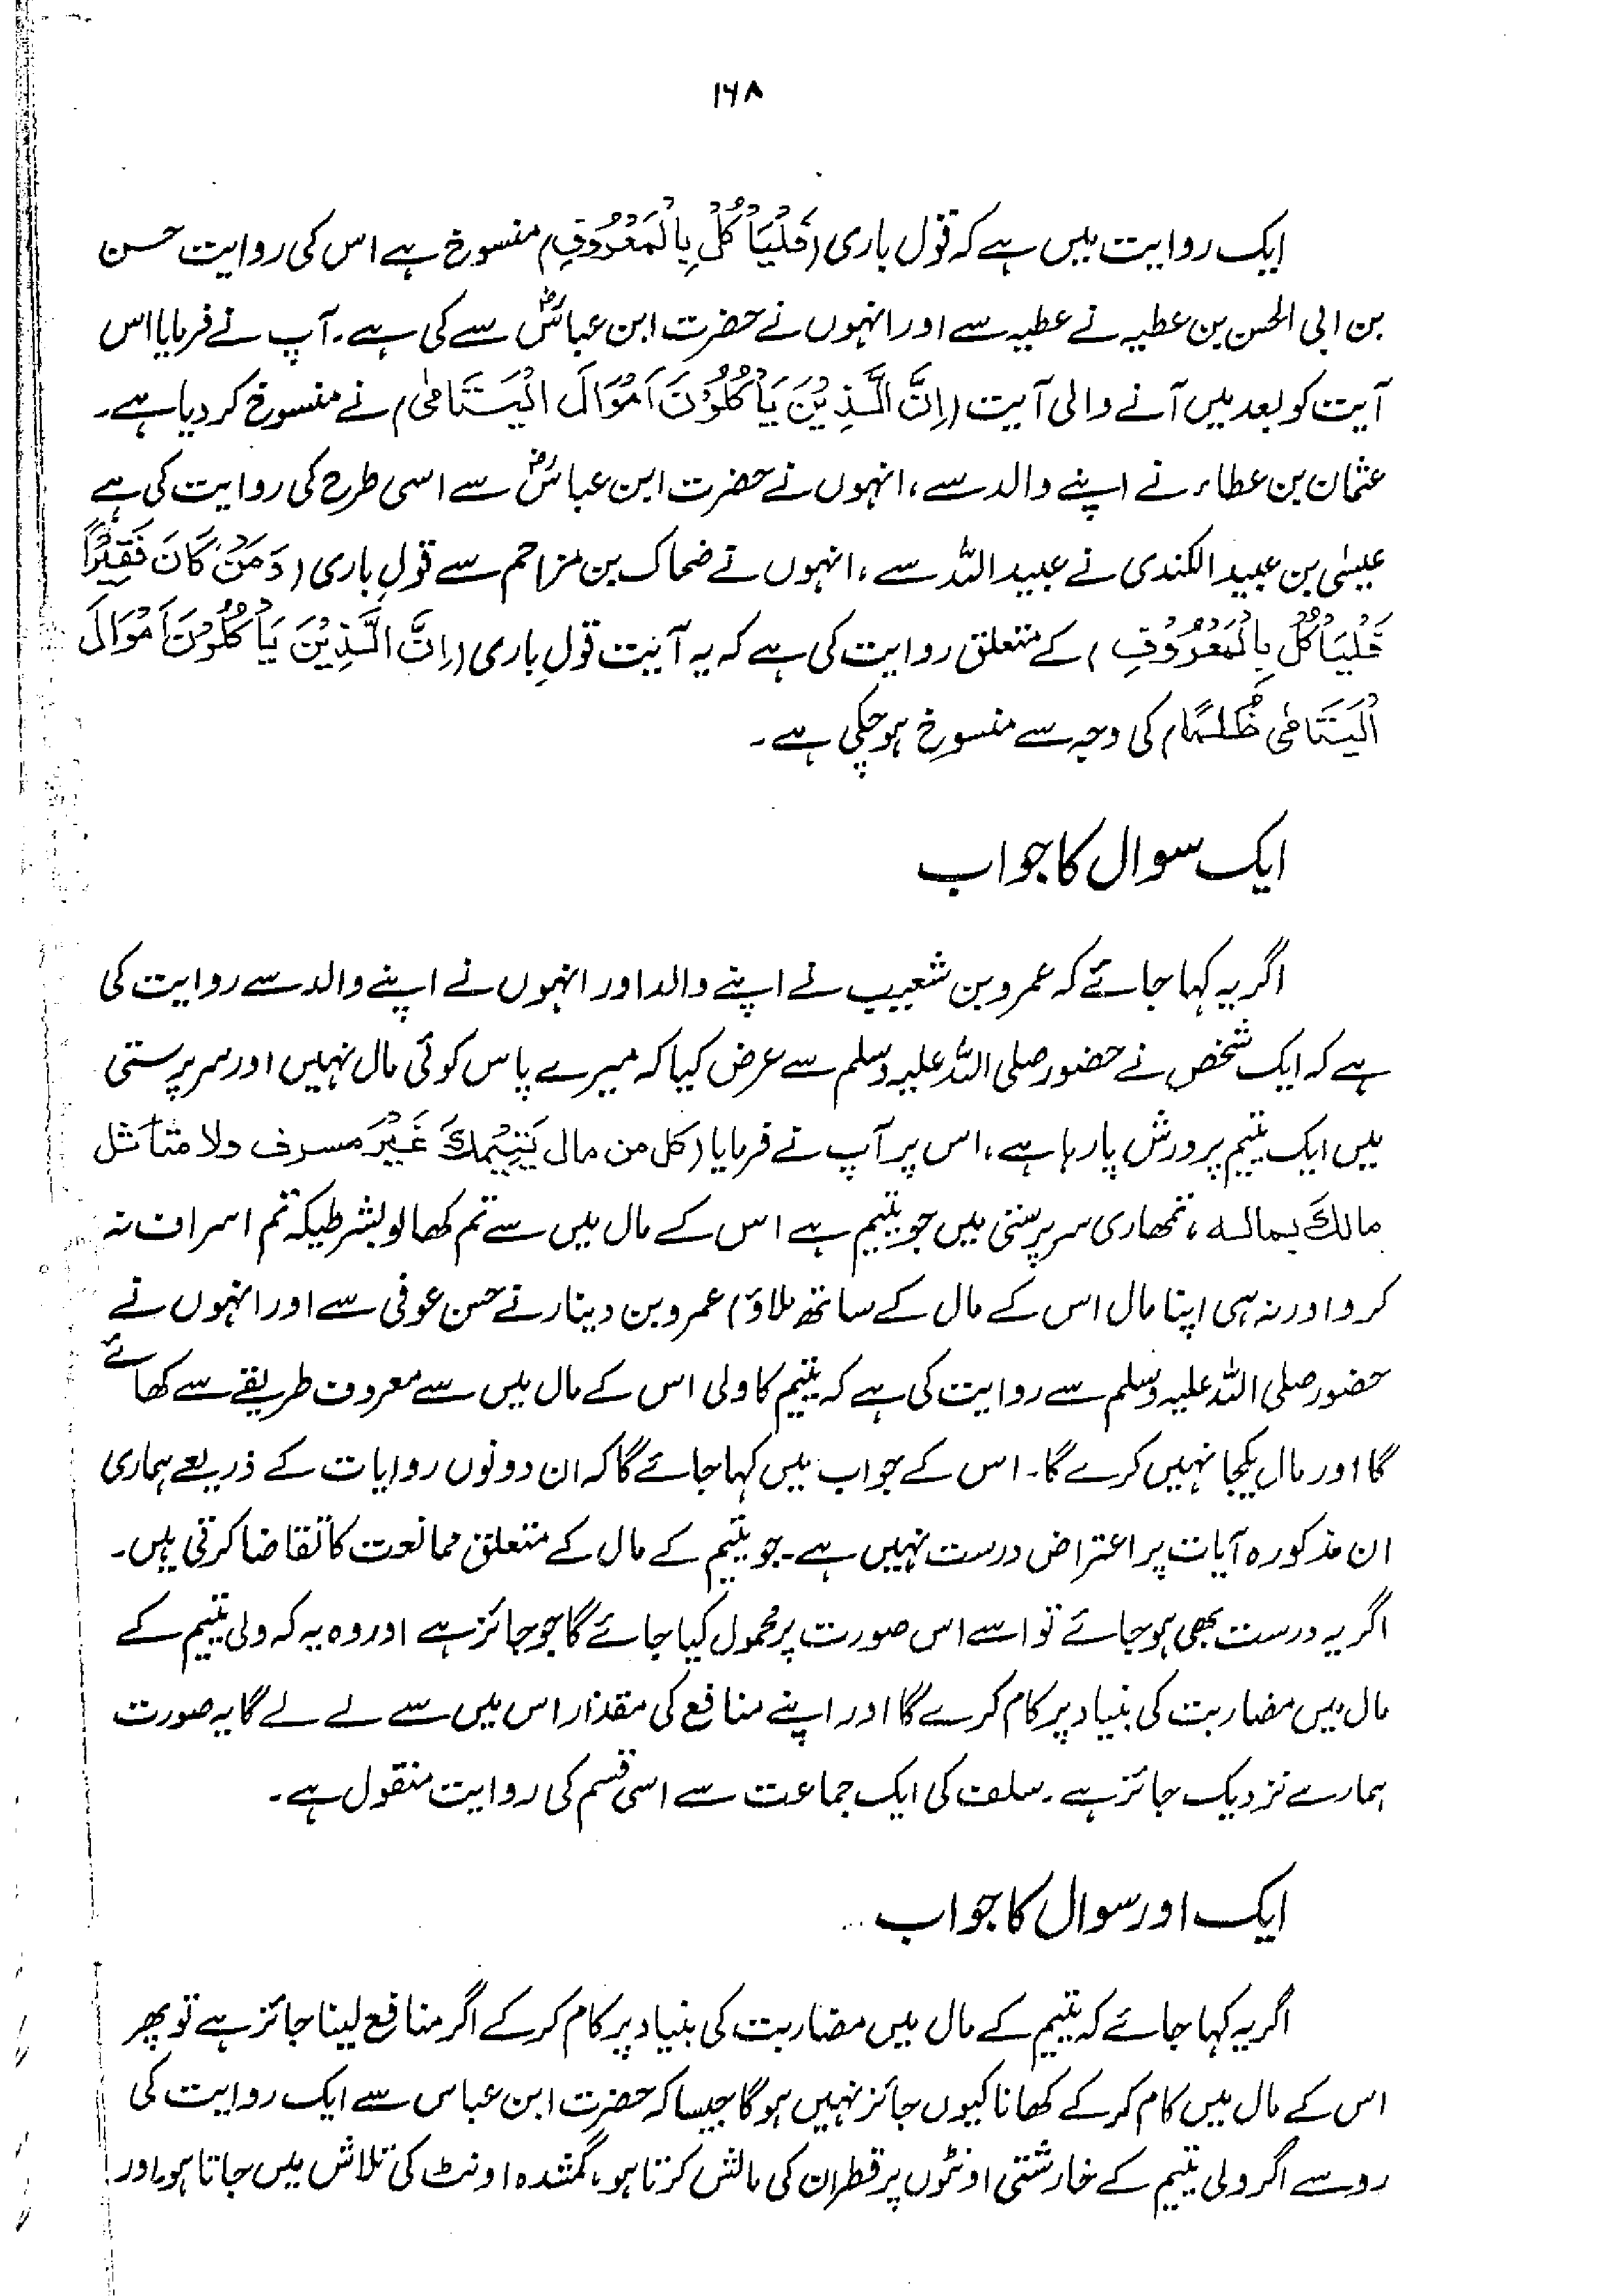 ۱۶۸
ایک روایت میں ہے کہ قول باری (فَلْيَأْكُلْ بِالْمَعْرُوْفِ) منسوخ ہے اس کی روایت حسن
بن ابی الحسن بن عطیہ نے عطیہ سے اور انہوں نے حضرت ابن عباسؓ سے کی ہے۔ آپ نے فرمایا اس
آیت کو بعد میں آنے والی آیت (اِنَّ الَّذِيْنَ يَأْكُلُوْنَ اَمْوَالَ الْيَتَامٰى) نے منسوخ کر دیا ہے۔
عثمان بن عطاء نے اپنے والد سے، انہوں نے حضرت ابن عباسؓ سے اسی طرح کی روایت کی ہے
عیسٰی بن عبید الکندی نے عبید اللہ سے، انہوں نے ضحاک بن مزاحم سے قولِ باری (وَمَنْ كَانَ فَقِيْرًا
فَلْيَأْكُلْ بِالْمَعْرُوْفِ) کے متعلق روایت کی ہے کہ یہ آیت قولِ باری (اِنَّ الَّذِيْنَ يَأْكُلُوْنَ اَمْوَالَ
الْيَتَامٰى ظُلْمًا) کی وجہ سے منسوخ ہو چکی ہے۔
ایک سوال کا جواب
اگر یہ کہا جائے کہ عمرو بن شعیب نے اپنے والد اور انہوں نے اپنے والد سے روایت کی
ہے کہ ایک شخص نے حضور صلی اللہ علیہ وسلم سے عرض کیا کہ میرے پاس کوئی مال نہیں اور سرپرستی
میں ایک یتیم پرورش پا رہا ہے، اس پر آپ نے فرمایا (كل من مال يَتِيْمِكَ غَيْرَ مسرف ولا متأثل
مالكَ بماله، تمھاری سرپرستی میں جو یتیم ہے اس کے مال میں سے تم کھا لو بشرطیکہ تم اسراف نہ
کرو اور نہ ہی اپنا مال اس کے مال کے ساتھ ملاؤ) عمرو بن دینار نے حسن عوفی سے اور انہوں نے
حضور صلی اللہ علیہ وسلم سے روایت کی ہے کہ یتیم کا ولی اس کے مال میں سے معروف طریقے سے کھائے
گا اور مال یکجا نہیں کرے گا۔ اس کے جواب میں کہا جائے گا کہ ان دونوں روایات کے ذریعے ہماری
ان مذکورہ آیات پر اعتراض درست نہیں ہے۔ جو یتیم کے مال کے متعلق ممانعت کا تقاضا کرتی ہیں۔
اگر یہ درست بھی ہو جائے تو اسے اس صورت پر محمول کیا جائے گا جو جائز ہے اور وہ یہ کہ ولی یتیم کے
مال میں مضاربت کی بنیاد پر کام کرے گا اور اپنے منافع کی مقدار اس میں سے لے لے گا یہ صورت
ہمارے نزدیک جائز ہے۔ سلف کی ایک جماعت سے اسی قسم کی روایت منقول ہے۔
ایک اور سوال کا جواب
اگر یہ کہا جائے کہ یتیم کے مال میں مضاربت کی بنیاد پر کام کر کے اگر منافع لینا جائز ہے تو پھر
اس کے مال میں کام کر کے کھانا کیوں جائز نہیں ہو گا جیسا کہ حضرت ابن عباس سے ایک روایت کی
رو سے اگر ولی یتیم کے خارشتی اونٹوں پر قطران کی مالش کرتا ہو، گمشدہ اونٹ کی تلاش میں جاتا ہو، اور